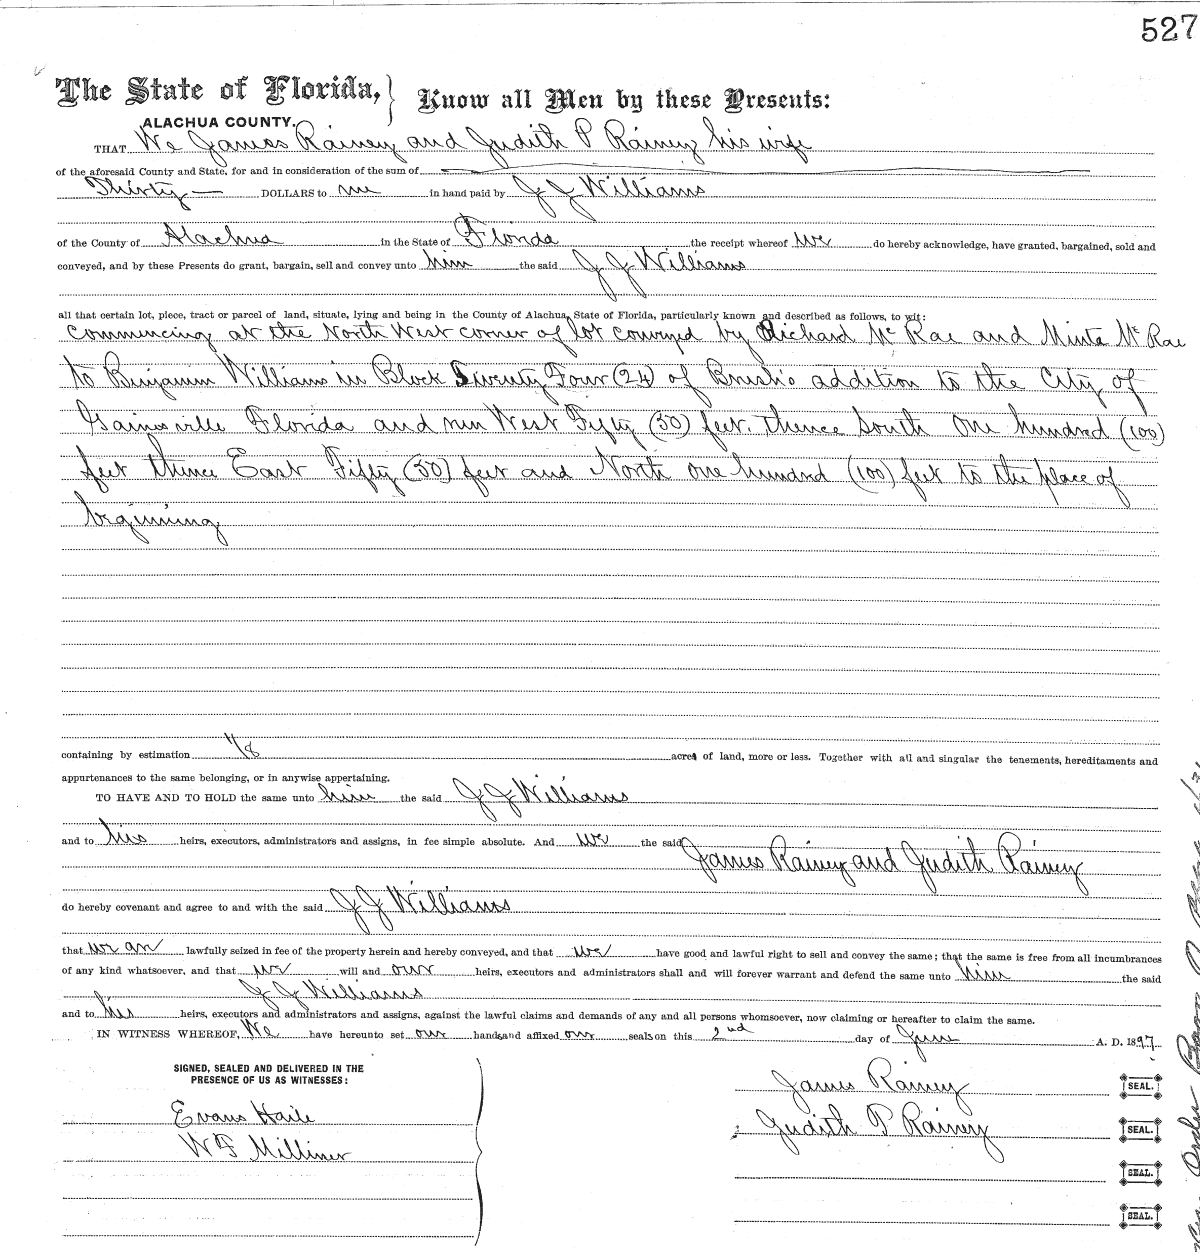 527
The State of Florida, } Know all Men by these Presents:
ALACHUA COUNTY.
THAT We James Rainey and Judith P Rainey his wife
of the aforesaid County and State, for and in consideration of the sum of
Thirty — DOLLARS to me in hand paid by J J Williams
of the County of Alachua in the State of Florida the receipt whereof we do hereby acknowledge, have granted, bargained, sold and
conveyed, and by these Presents do grant, bargain, sell and convey unto him the said J J Williams
all that certain lot, piece, tract or parcel of land, situate, lying and being in the County of Alachua, State of Florida, particularly known and described as follows, to wit:
Commencing at the North West corner of lot conveyed by Richard McRae and Minta McRae
to Benjamin Williams in Block Twenty Four (24) of Brush's addition to the City of
Gainesville Florida and run West Fifty (50) feet. thence South One hundred (100)
feet thence East Fifty (50) feet and North one hundred (100) feet to the place of
beginning
containing by estimation 1/8 acres of land, more or less. Together with all and singular the tenements, hereditaments and
appurtenances to the same belonging, or in anywise appertaining.
TO HAVE AND TO HOLD the same unto him the said J J Williams
and to his heirs, executors, administrators and assigns, in fee simple absolute. And we the said James Rainey and Judith Rainey
do hereby covenant and agree to and with the said J J Williams
that we are lawfully seized in fee of the property herein and hereby conveyed, and that we have good and lawful right to sell and convey the same; that the same is free from all incumbrances
of any kind whatsoever, and that we will and our heirs, executors and administrators shall and will forever warrant and defend the same unto him the said
J J Williams
and to his heirs, executors and administrators and assigns, against the lawful claims and demands of any and all persons whomsoever, now claiming or hereafter to claim the same.
IN WITNESS WHEREOF, We have hereunto set our hands and affixed our seals on this 2nd day of June A. D. 1897
SIGNED, SEALED AND DELIVERED IN THE
PRESENCE OF US AS WITNESSES:
James Rainey SEAL.
Evans Haile
Judith P Rainey SEAL.
W F Milliner
SEAL.
SEAL.